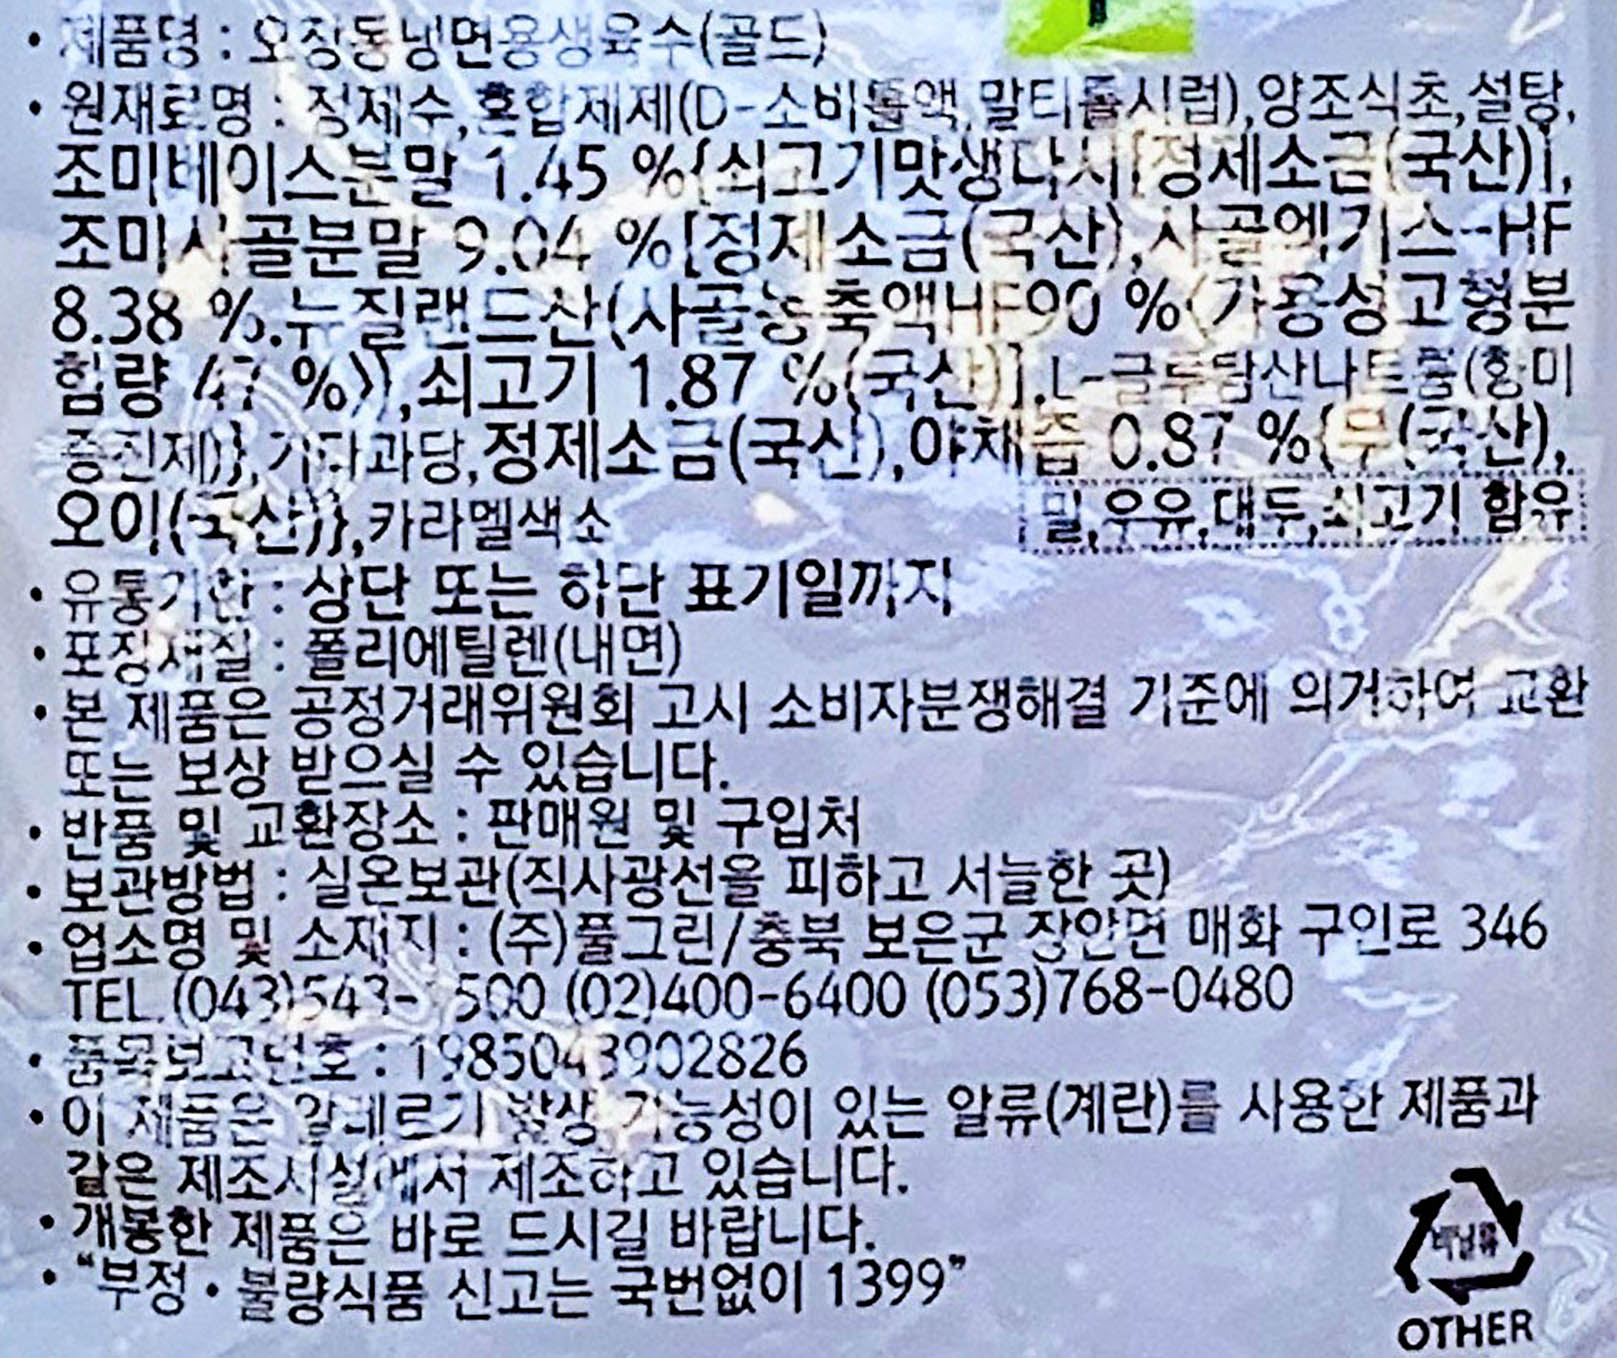 • 제품명 : 오장동냉면용생육수(골드)
• 원재료명 : 정제수,혼합제제(D-소비톨액,말티톨시럽),양조식초,설탕,
조미베이스분말 1.45 %{쇠고기맛생다시[정제소금(국산)],
조미사골분말 9.04 %[정제소금(국산),사골엑기스-HF
8.38 %.뉴질랜드산(사골농축액HF90 %〈가용성고형분
함량 47 %〉)],쇠고기 1.87 %(국산)],L-글루탐산나트륨(향미
증진제)},기타과당,정제소금(국산),야채즙 0.87 %{무(국산),
오이(국산)},카라멜색소
밀,우유,대두,쇠고기 함유
• 유통기한 : 상단 또는 하단 표기일까지
• 포장재질 : 폴리에틸렌(내면)
• 본 제품은 공정거래위원회 고시 소비자분쟁해결 기준에 의거하여 교환
또는 보상 받으실 수 있습니다.
• 반품 및 교환장소 : 판매원 및 구입처
• 보관방법 : 실온보관(직사광선을 피하고 서늘한 곳)
• 업소명 및 소재지 : (주)풀그린/충북 보은군 장안면 매화 구인로 346
TEL. (02)400-6400 (053)768-0480
• 품목보고번호 : 1985043902826
• 이 제품은 알레르기 발생 가능성이 있는 알류(계란)를 사용한 제품과
같은 제조시설에서 제조하고 있습니다.
• 개봉한 제품은 바로 드시길 바랍니다.
• “부정 • 불량식품 신고는 국번없이 1399”
비닐류
OTHER